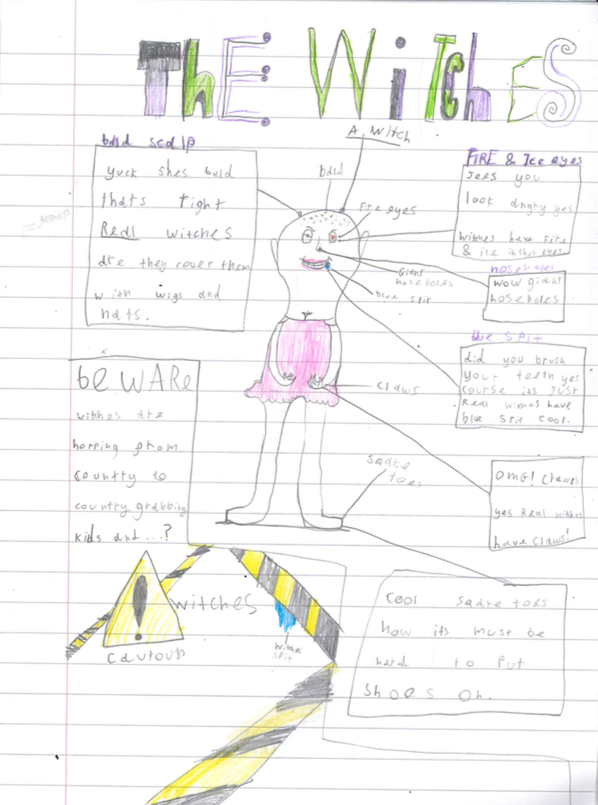 THE WiTchES
A. Witch
bald scalp
yuck shes bald
thats right
Real witches
are they cover them
with wigs and
hats.
bald
fire eyes
Giant
nose holes
blue spit
claws
sqare
toes
FIRE & Ice eyes
Jees you
look angry yes
witches have fire
& ice in their eyes
noseholes
wow giant
noseholes
blue spit
did you brush
your teeth yes
course its just
Real witches have
blue spit cool.
OMG! claws
yes Real witches
have claws!
beWARe
witches are
hopping from
country to
country grabbing
kids and ...?
!
witches
cautous
witch
spit
cool sqare toes
how its must be
hard to put
shoes on.